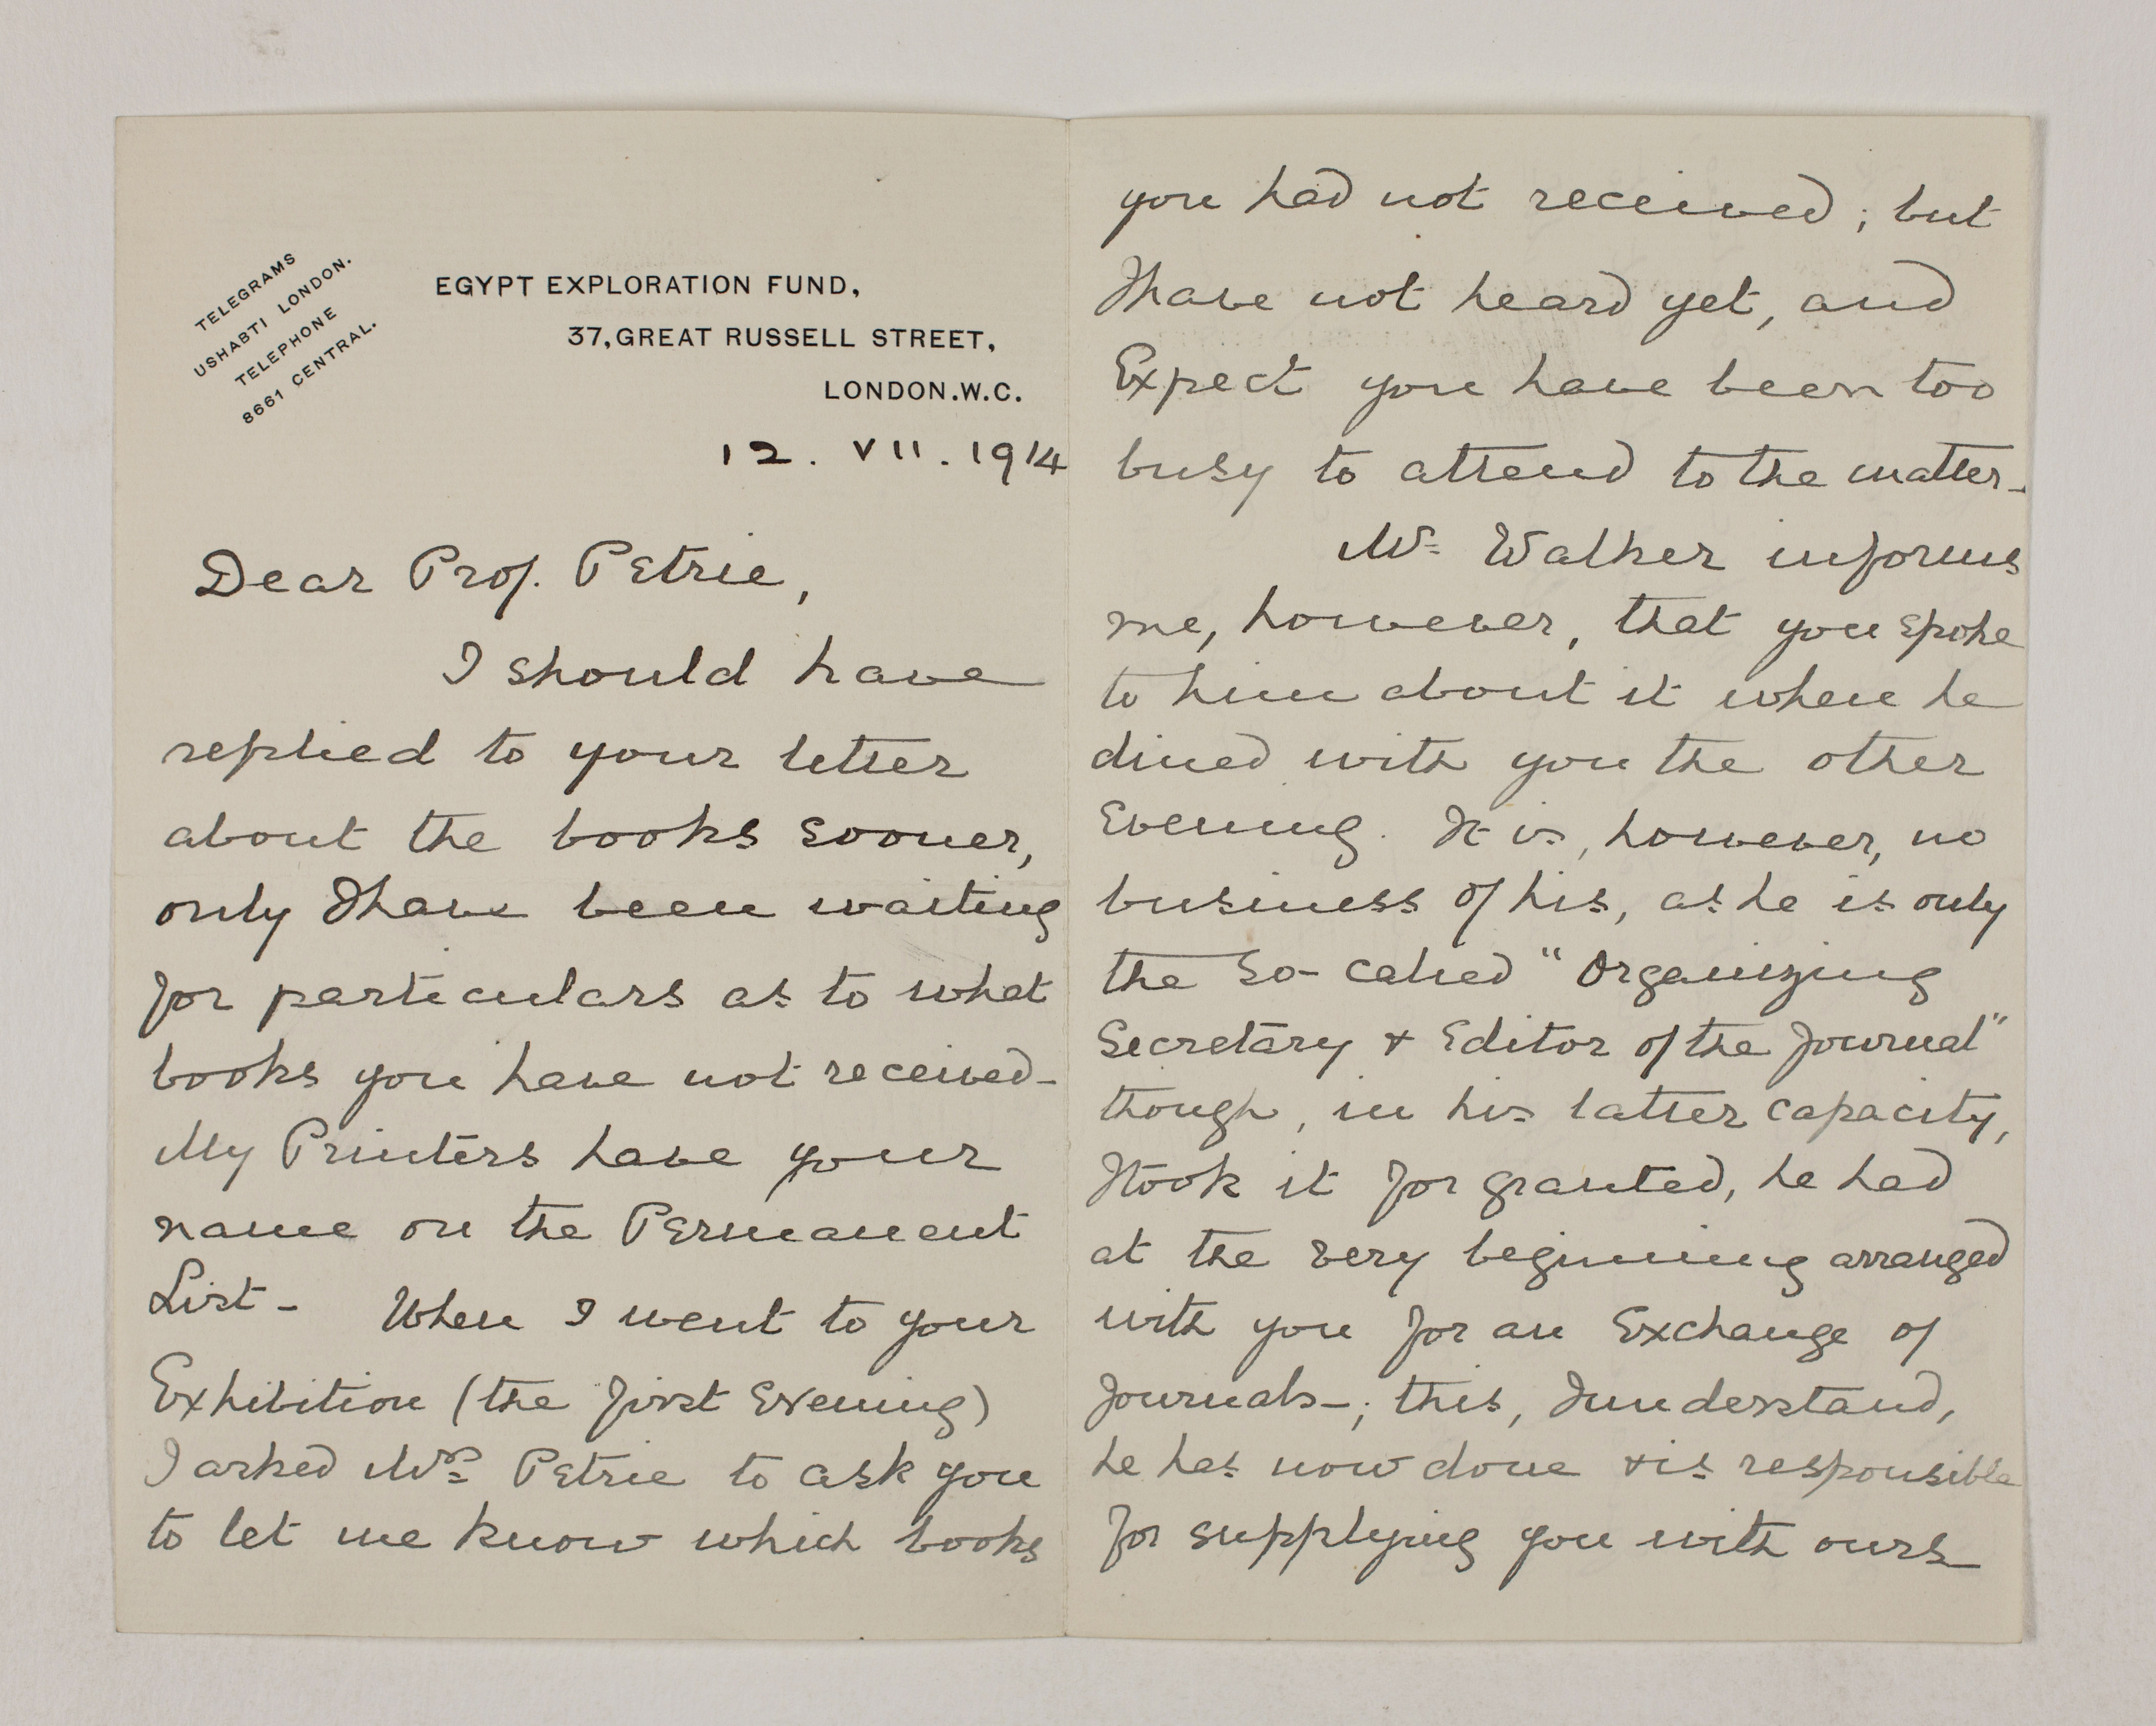 TELEGRAMS
USHABTI LONDON.
TELEPHONE
8661 CENTRAL.
EGYPT EXPLORATION FUND,
37, GREAT RUSSELL STREET,
LONDON. W.C.
12. VII. 1914
Dear Prof. Petrie,
I should have
replied to your letter
about the books sooner,
only I have been waiting
for particulars as to what
books you have not received-
My Printers have your
name on the Permanent
List - When I went to your
Exhibition (the first Evening)
I asked Mrs Petrie to ask you
to let me know which books
you had not received; but
I have not heard yet, and
Expect you have been too
busy to attend to the matter-
Mr Walker informs
me, however, that you spoke
to him about it when he
dined with you the other
Evening. It is, however, no
business of his, as he is only
the so-called "Organizing
Secretary & Editor of the Journal"
though, in his latter capacity,
I took it for granted, he had
at the very beginning arranged
with you for an Exchange of
Journals-; this, I understand,
he has now done & is responsible
for supplying you with ours-